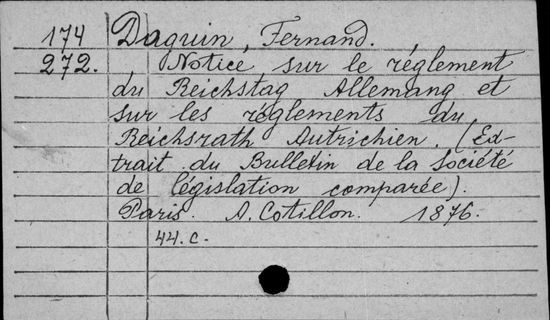 174 Daguin, Fernand.
272. Notice sur le réglement
du Reichstag Allemang et
sur les réglements du
Reichsrath Autrichien. (Ex-
trait du Bulletin de la Société
de législation comparée).
Paris. A. Cotillon. 1876.
44. c.